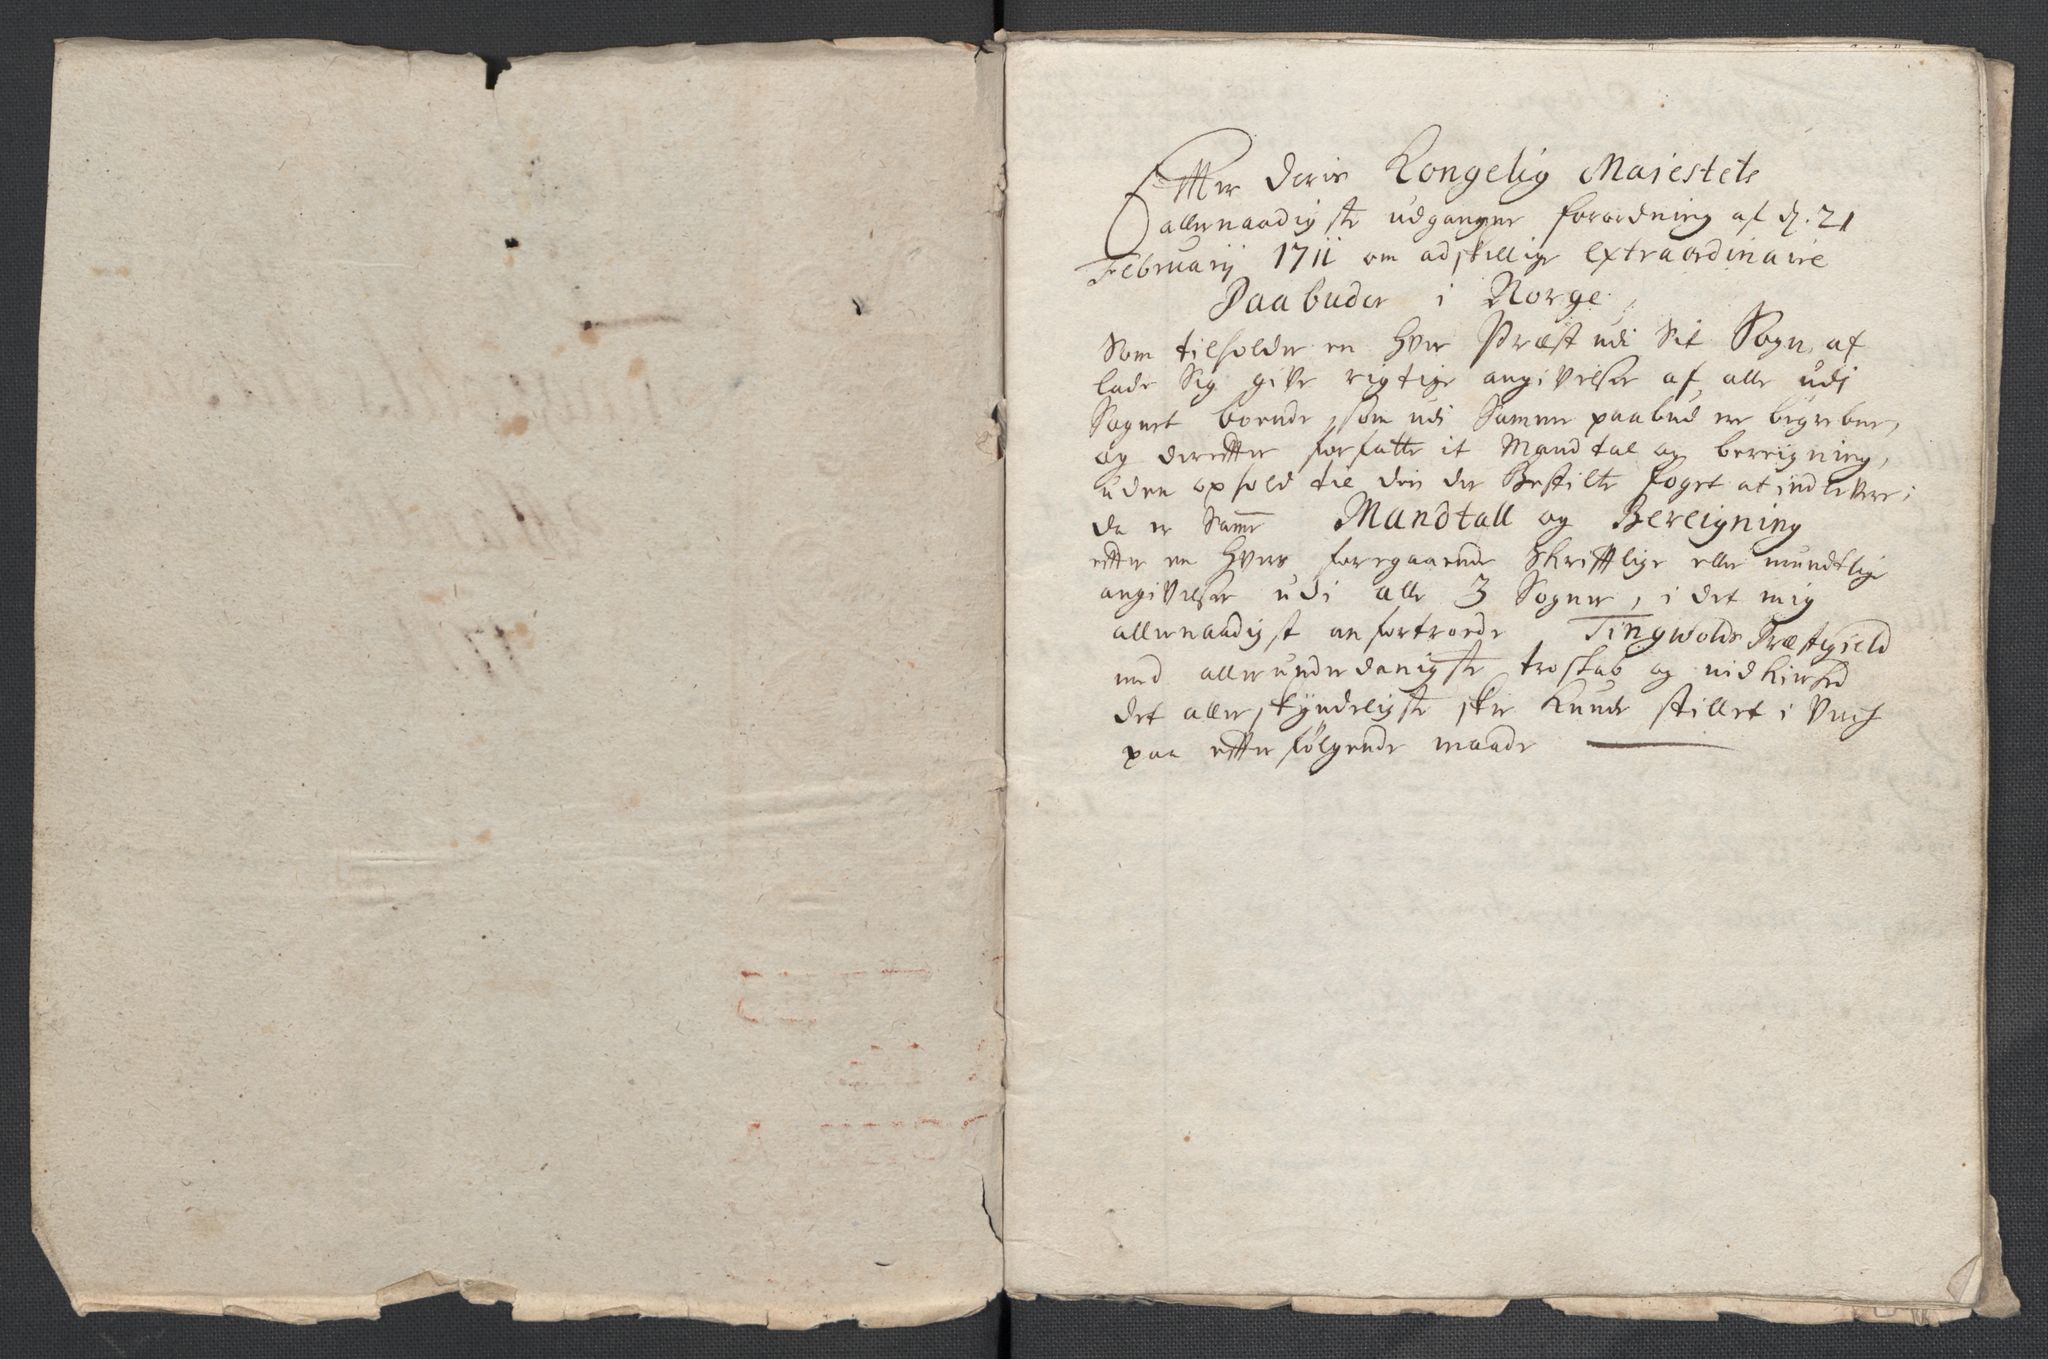 Effter Deris Kongelig Maiestets
allernaadigste udgangne forordning af d. 21
Februarij 1711 om adskillige extraordinaire
Paabuder i Norge,
Som tilholder en hver Præst udi Sit Sogn, at
lade Sig give rigtige angivelser af alle udi
Sognet boende, som udi Samme paabud ere begrebne,
og derefter forfatte it Mandtal og bereigning,
uden ophold til den der Bestilte foget at indlevere;
da er Samme Mandtall og Bereigning
efter en hvers foregaaende Skrifftlige eller mundtlig
angivelser udi alle 3 Sogner, i det mig
allernaadigst anfortroede Tingwolds Præstegield
med allerunderdanigste troskab og nidkierhed
det allerskyndeligste skee kunde stillet i verch
paa effterfølgende maade